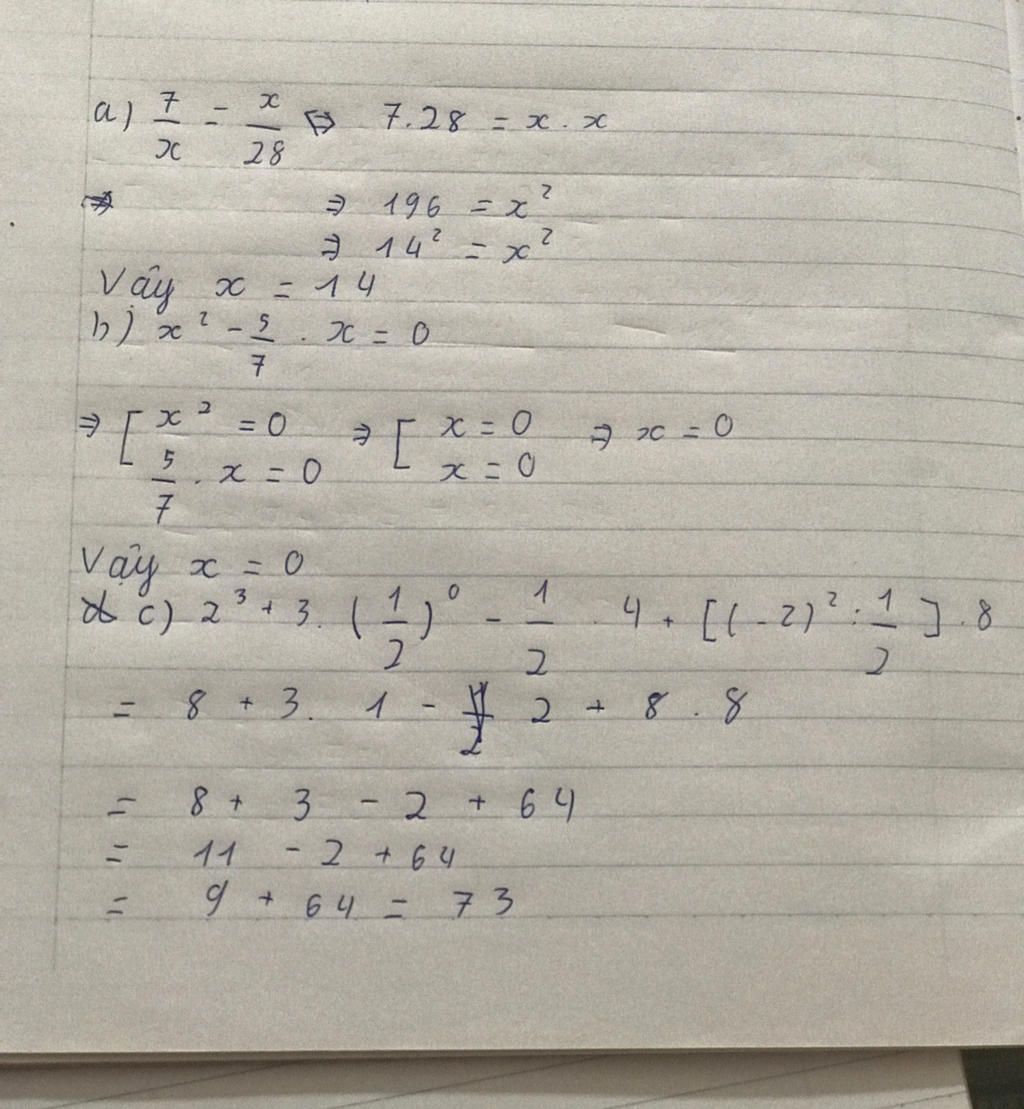 a) 7/x = x/28 ⇔ 7.28 = x.x
⇒ 196 = x²
⇒ 14² = x²
Vậy x = 14
b) x² - 5/7 . x = 0
⇒ [ x² = 0 ⇒ [ x = 0 ⇒ x = 0
5/7 . x = 0 x = 0
Vậy x = 0
c) 2³ + 3. (1/2)⁰ - 1/2 . 4 + [(-2)² : 1/2] . 8
= 8 + 3. 1 - 2 + 8 . 8
= 8 + 3 - 2 + 64
= 11 - 2 + 64
= 9 + 64 = 73